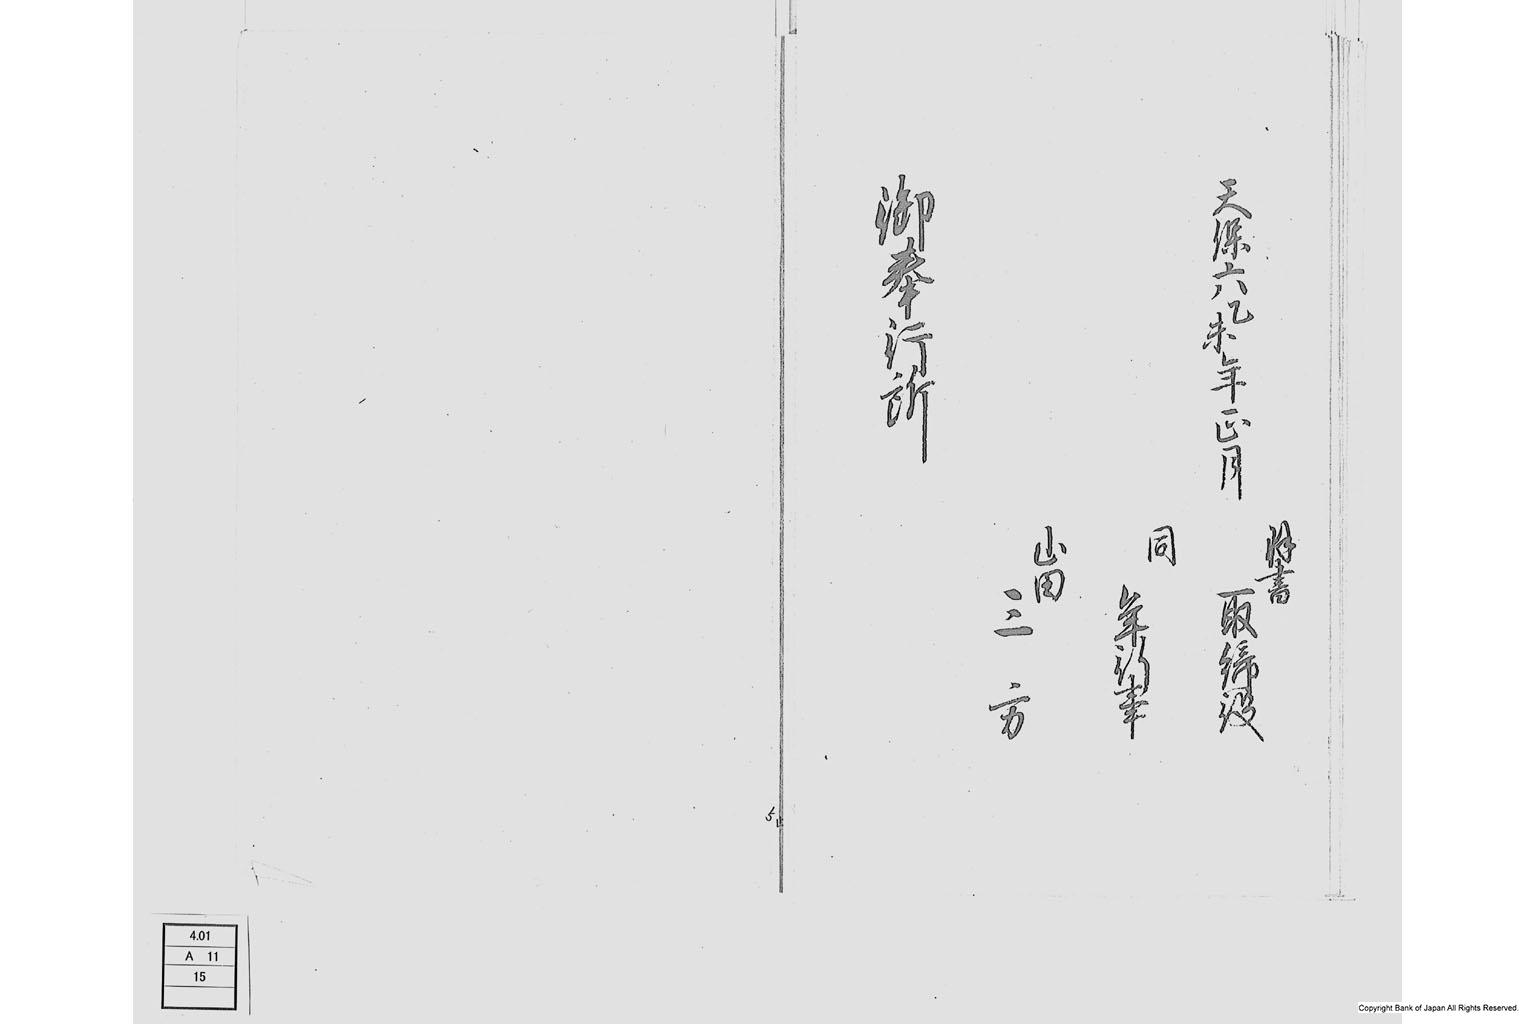 天保六乙未年正月
羽書
取締役
同
年行事
山田
三方
御奉行所
4.01
A 11
15
Copyright Bank of Japan All Rights Reserved.